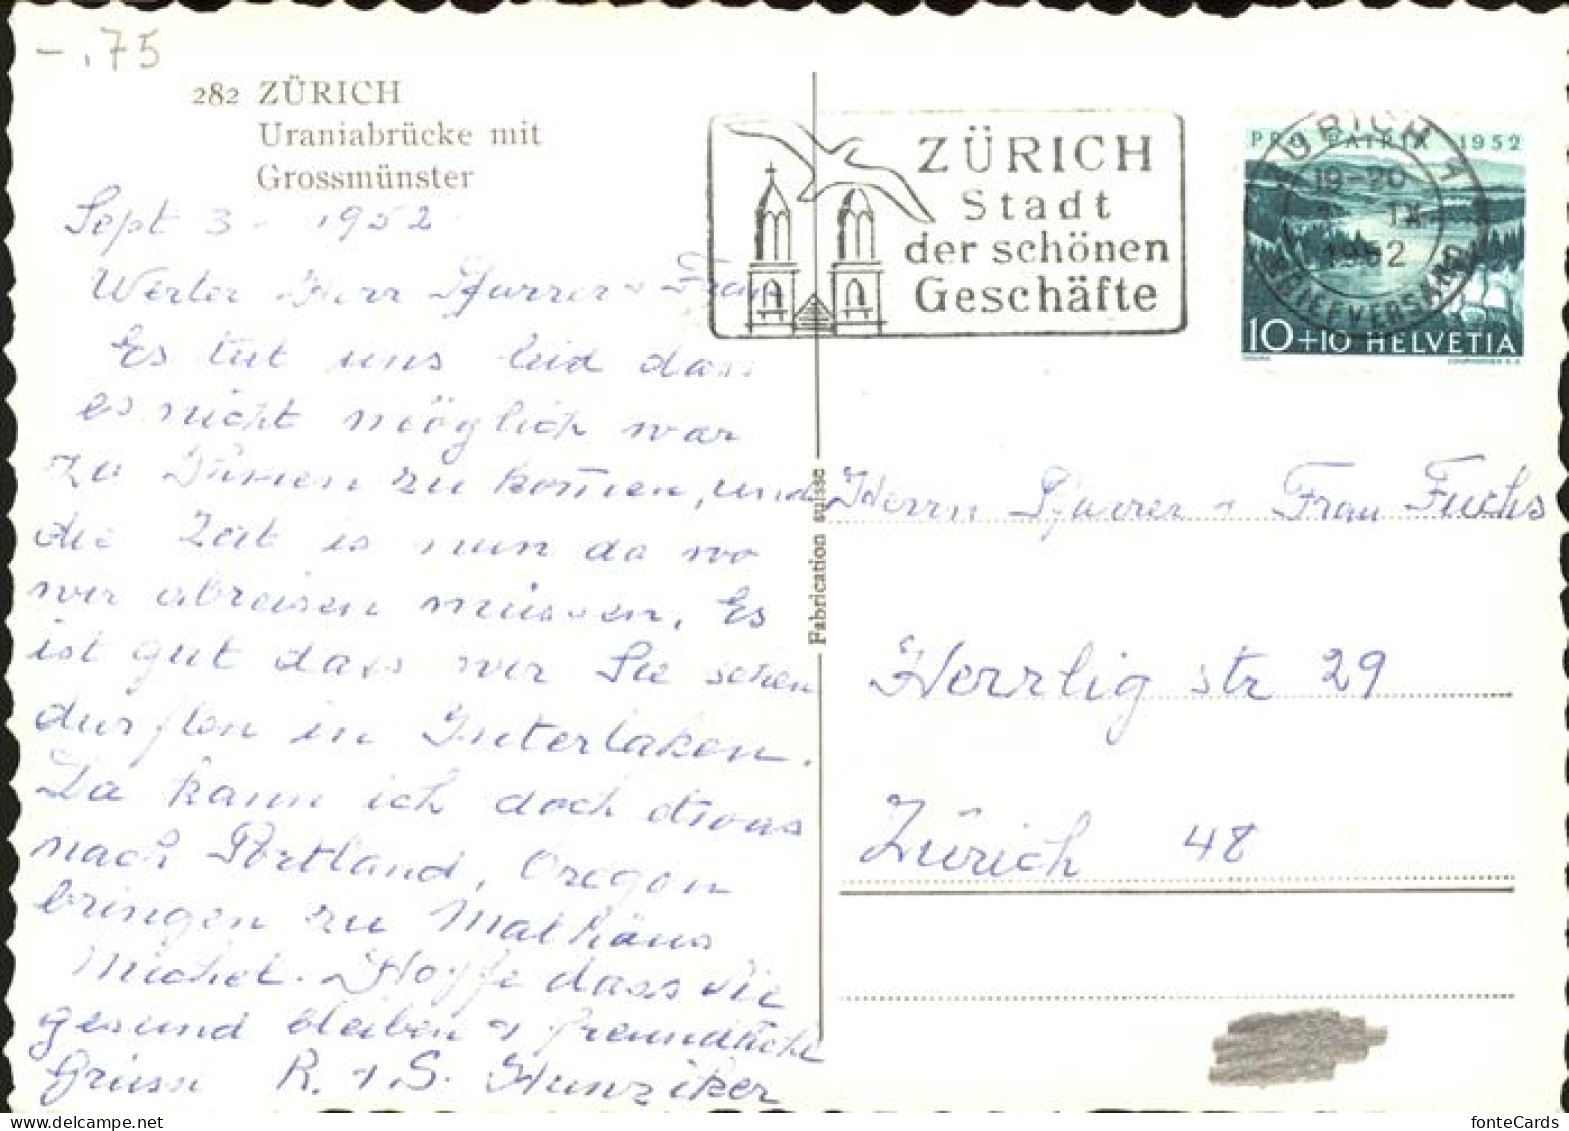 -.75
282 ZÜRICH
Uraniabrücke mit
Grossmünster
Sept 3 - 1952
Werter Herr Pfarrer + Frau
Es tut uns leid dass
es nicht möglich war
zu Ihnen zu kommen, und
die Zeit is nun da wo
wir abreisen müssen. Es
ist gut dass wir Sie sehen
durften in Interlaken.
Da kann ich doch etwas
nach Portland, Oregon
bringen zu Mathäus
Michel. Hoffe dass Sie
gesund bleiben + freundliche
Grüsse R. + S. Hunziker
Fabrication suisse
ZÜRICH
Stadt
der schönen
Geschäfte
PRO PATRIA 1952
ZÜRICH 1
19-20
IX
1952
BRIEFVERSAND
10+10 HELVETIA
Herrn Pfarrer + Frau Fuchs
Herrlig str 29
Zürich 48
fonteCards